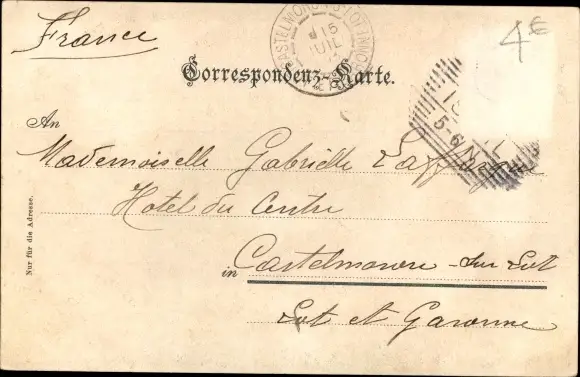 France
CASTELMORON
15
JUIL
4€
Correspondenz-Karte.
5-6 N
An
Mademoiselle Gabrielle
Hotel du Centre
Nur für die Adresse.
in Castelmoron - sur Lot
Lot et Garonne